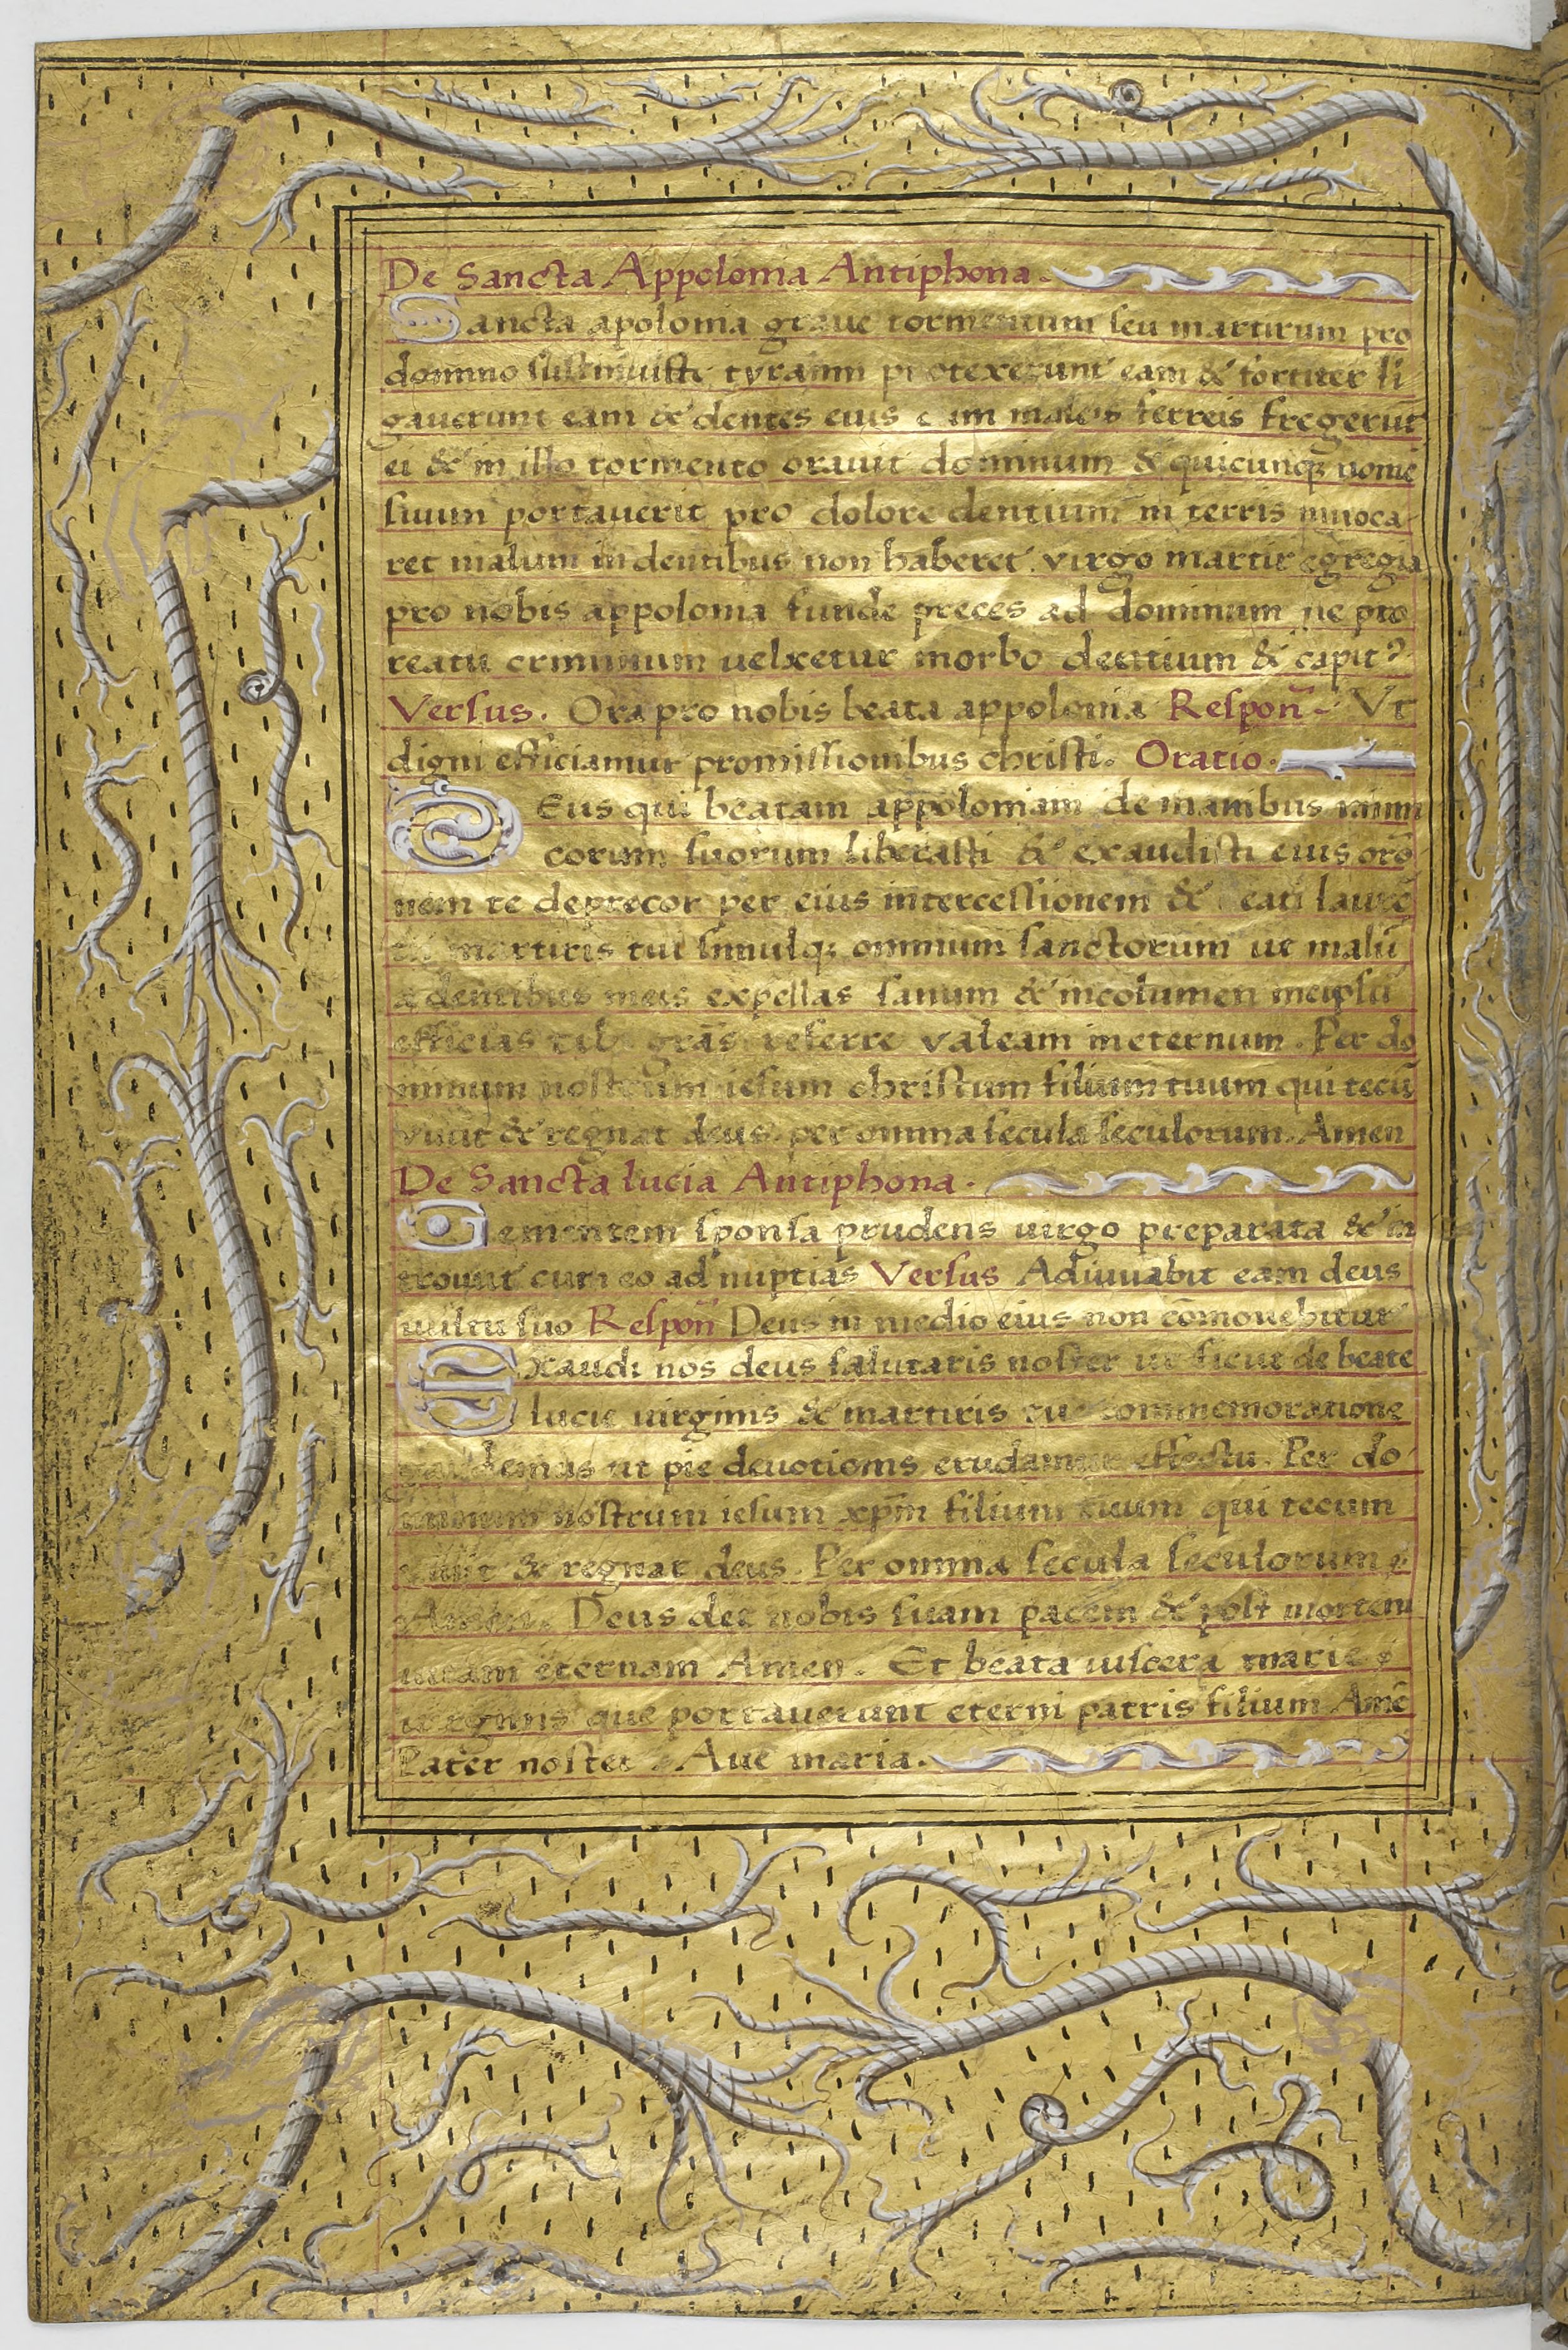 De Sancta Appolonia Antiphona.
Sancta apolonia graue tormentum seu martirum pro
domino sustinuisti tyranni protexerunt eam & fortiter li
gauerunt eam & dentes eius cum maleis ferreis fregerūt
ei & in illo tormento orauit dominum & quicunqꝫ nomē
suum portauerit pro dolore dentium in terris inuoca
ret malum in dentibus non haberet. virgo martir egregia
pro nobis appolonia funde preces ad dominum ne pro
reatu criminum uelxetur morbo dentium & capit?
Versus. Ora pro nobis beata appolonia Respoñ. Vt
digni efficiamur promissionibus christi. Oratio.
DEus qui beatam appoloniam de manibus inim
corum suorum liberasti & exaudisti eius orō
nem te deprecor per eius intercessionem & beati laurē
tii martiris tui simulqꝫ omnium sanctorum ut malū
a dentibus meis expellas sanum & incolumen meipsū
efficias tibi grās referre valeam ineternum. Per do
minum nostrum iesum christum filium tuum qui tecū
viuit & regnat deus. per omnia secula seculorum. Amen
De Sancta lucia Antiphona.
ementem sponsa prudens uirgo preparata & in
trouit cum eo ad nuptias Versus Adiuuabit eam deus
uultu suo Respoñ Deus in medio eius non cōmouebitur
Exaudi nos deus salutaris noster ut sicut de beate
lucie uirginis & martiris tue commemoratione
gaudemus ut pie deuotionis erudamur effectu. Per do
minum nostrum iesum xp̄m filium tuum qui tecum
viuit & regnat deus. Per omnia secula seculorum
Amen. Deus det nobis suam pacem & post mortem
uitam eternam Amen. Et beata uiscera marie
uirginis que portauerunt eterni patris filium Amē
Pater noster. Aue maria.